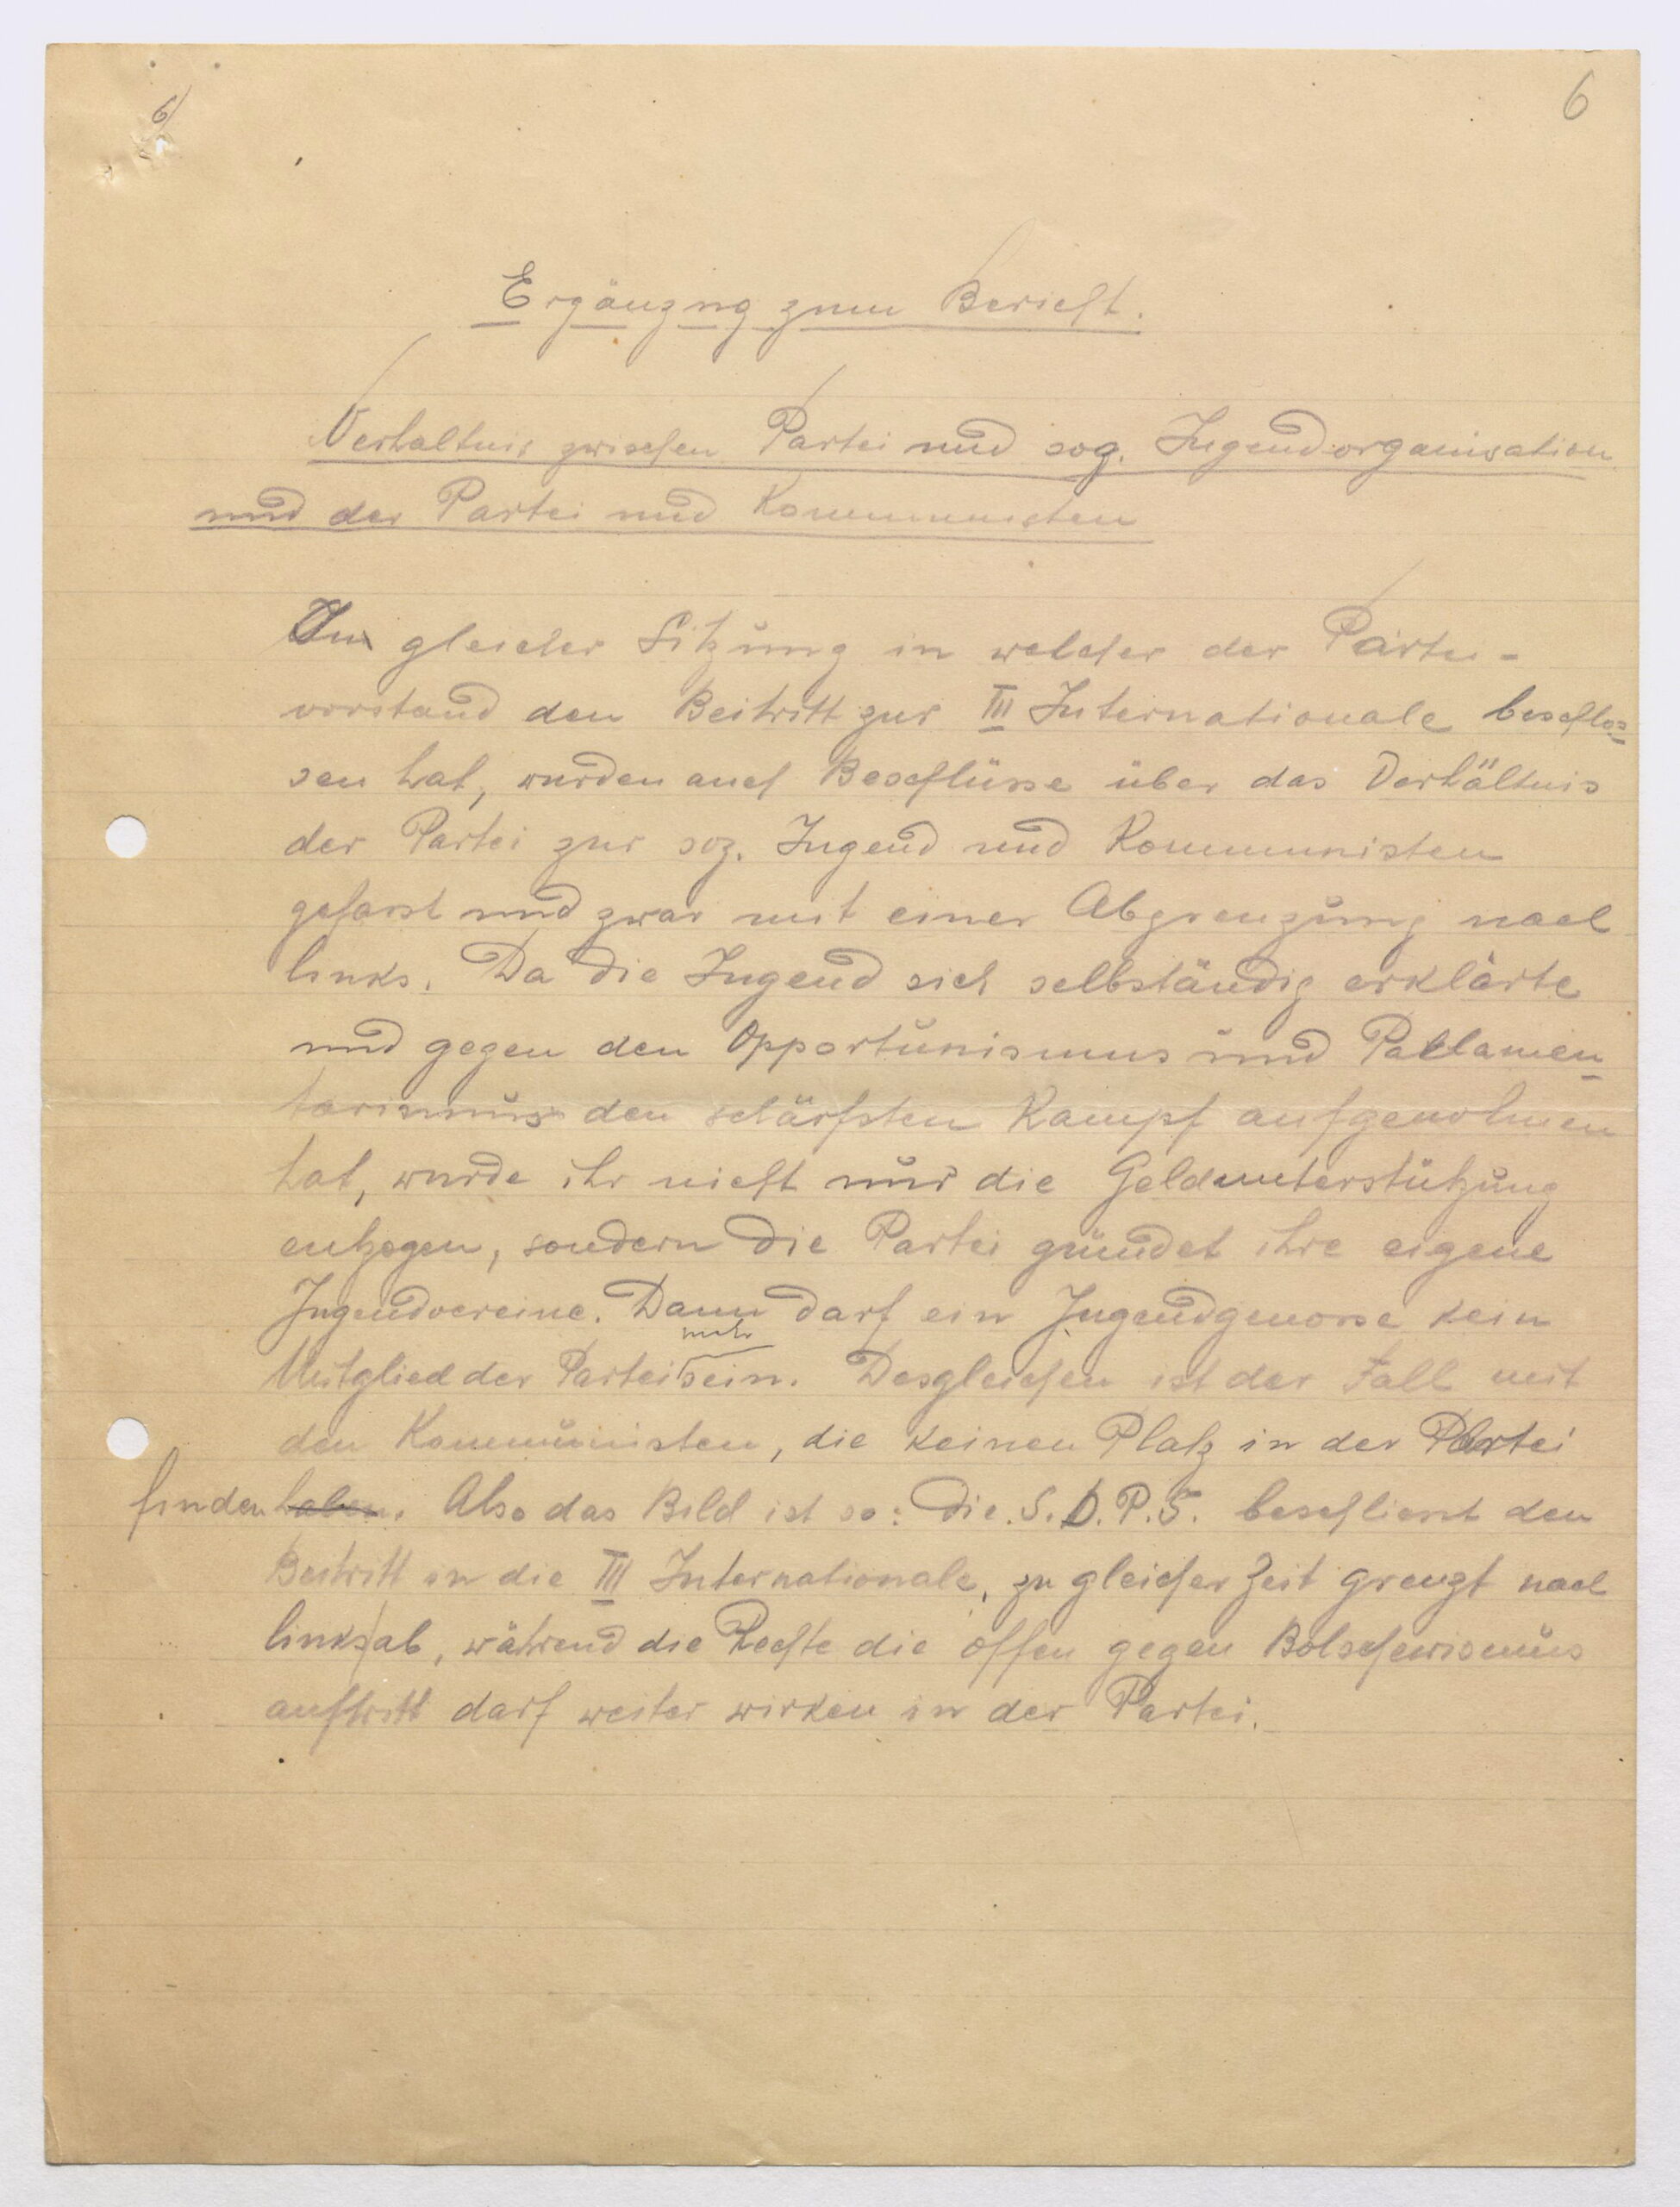 6/
6
Ergänzng zum Bericht.
Verhaltnis zwischen Partei und sog. Jugendorganisation
und der Partei und Kommunisten
In gleicher Sitzung in welcher der Partei-
vorstand den Beitritt zur III Internationale beschlos=
sen hat, wurden auch Beschlüsse über das Verhältnis
der Partei zur soz. Jugend und Kommunisten
gefasst und zwar mit einer Abgrenzung nach
links. Da die Jugend sich selbständig erklärte
und gegen den Opportunismus und Parlamen-
tarismus den schärfsten Kampf aufgenohmen
hat, wurde ihr nicht nur die Geldunterstützung
entzogen, sondern die Partei gründet ihre eigene
Jugendvereine. Dann darf ein Jugendgenosse kein
mehr
Mitglied der Partei sein. Desgleichen ist der Fall mit
den Kommunisten, die keinen Platz in der Partei
finden haben. Also das Bild ist so: Die S.D.P.S. beschliesst den
Beitritt in die III Internationale, zu gleicher Zeit grenzt nach
links ab, während die Rechte die offen gegen Bolschewismus
auftritt darf weiter wirken in der Partei.